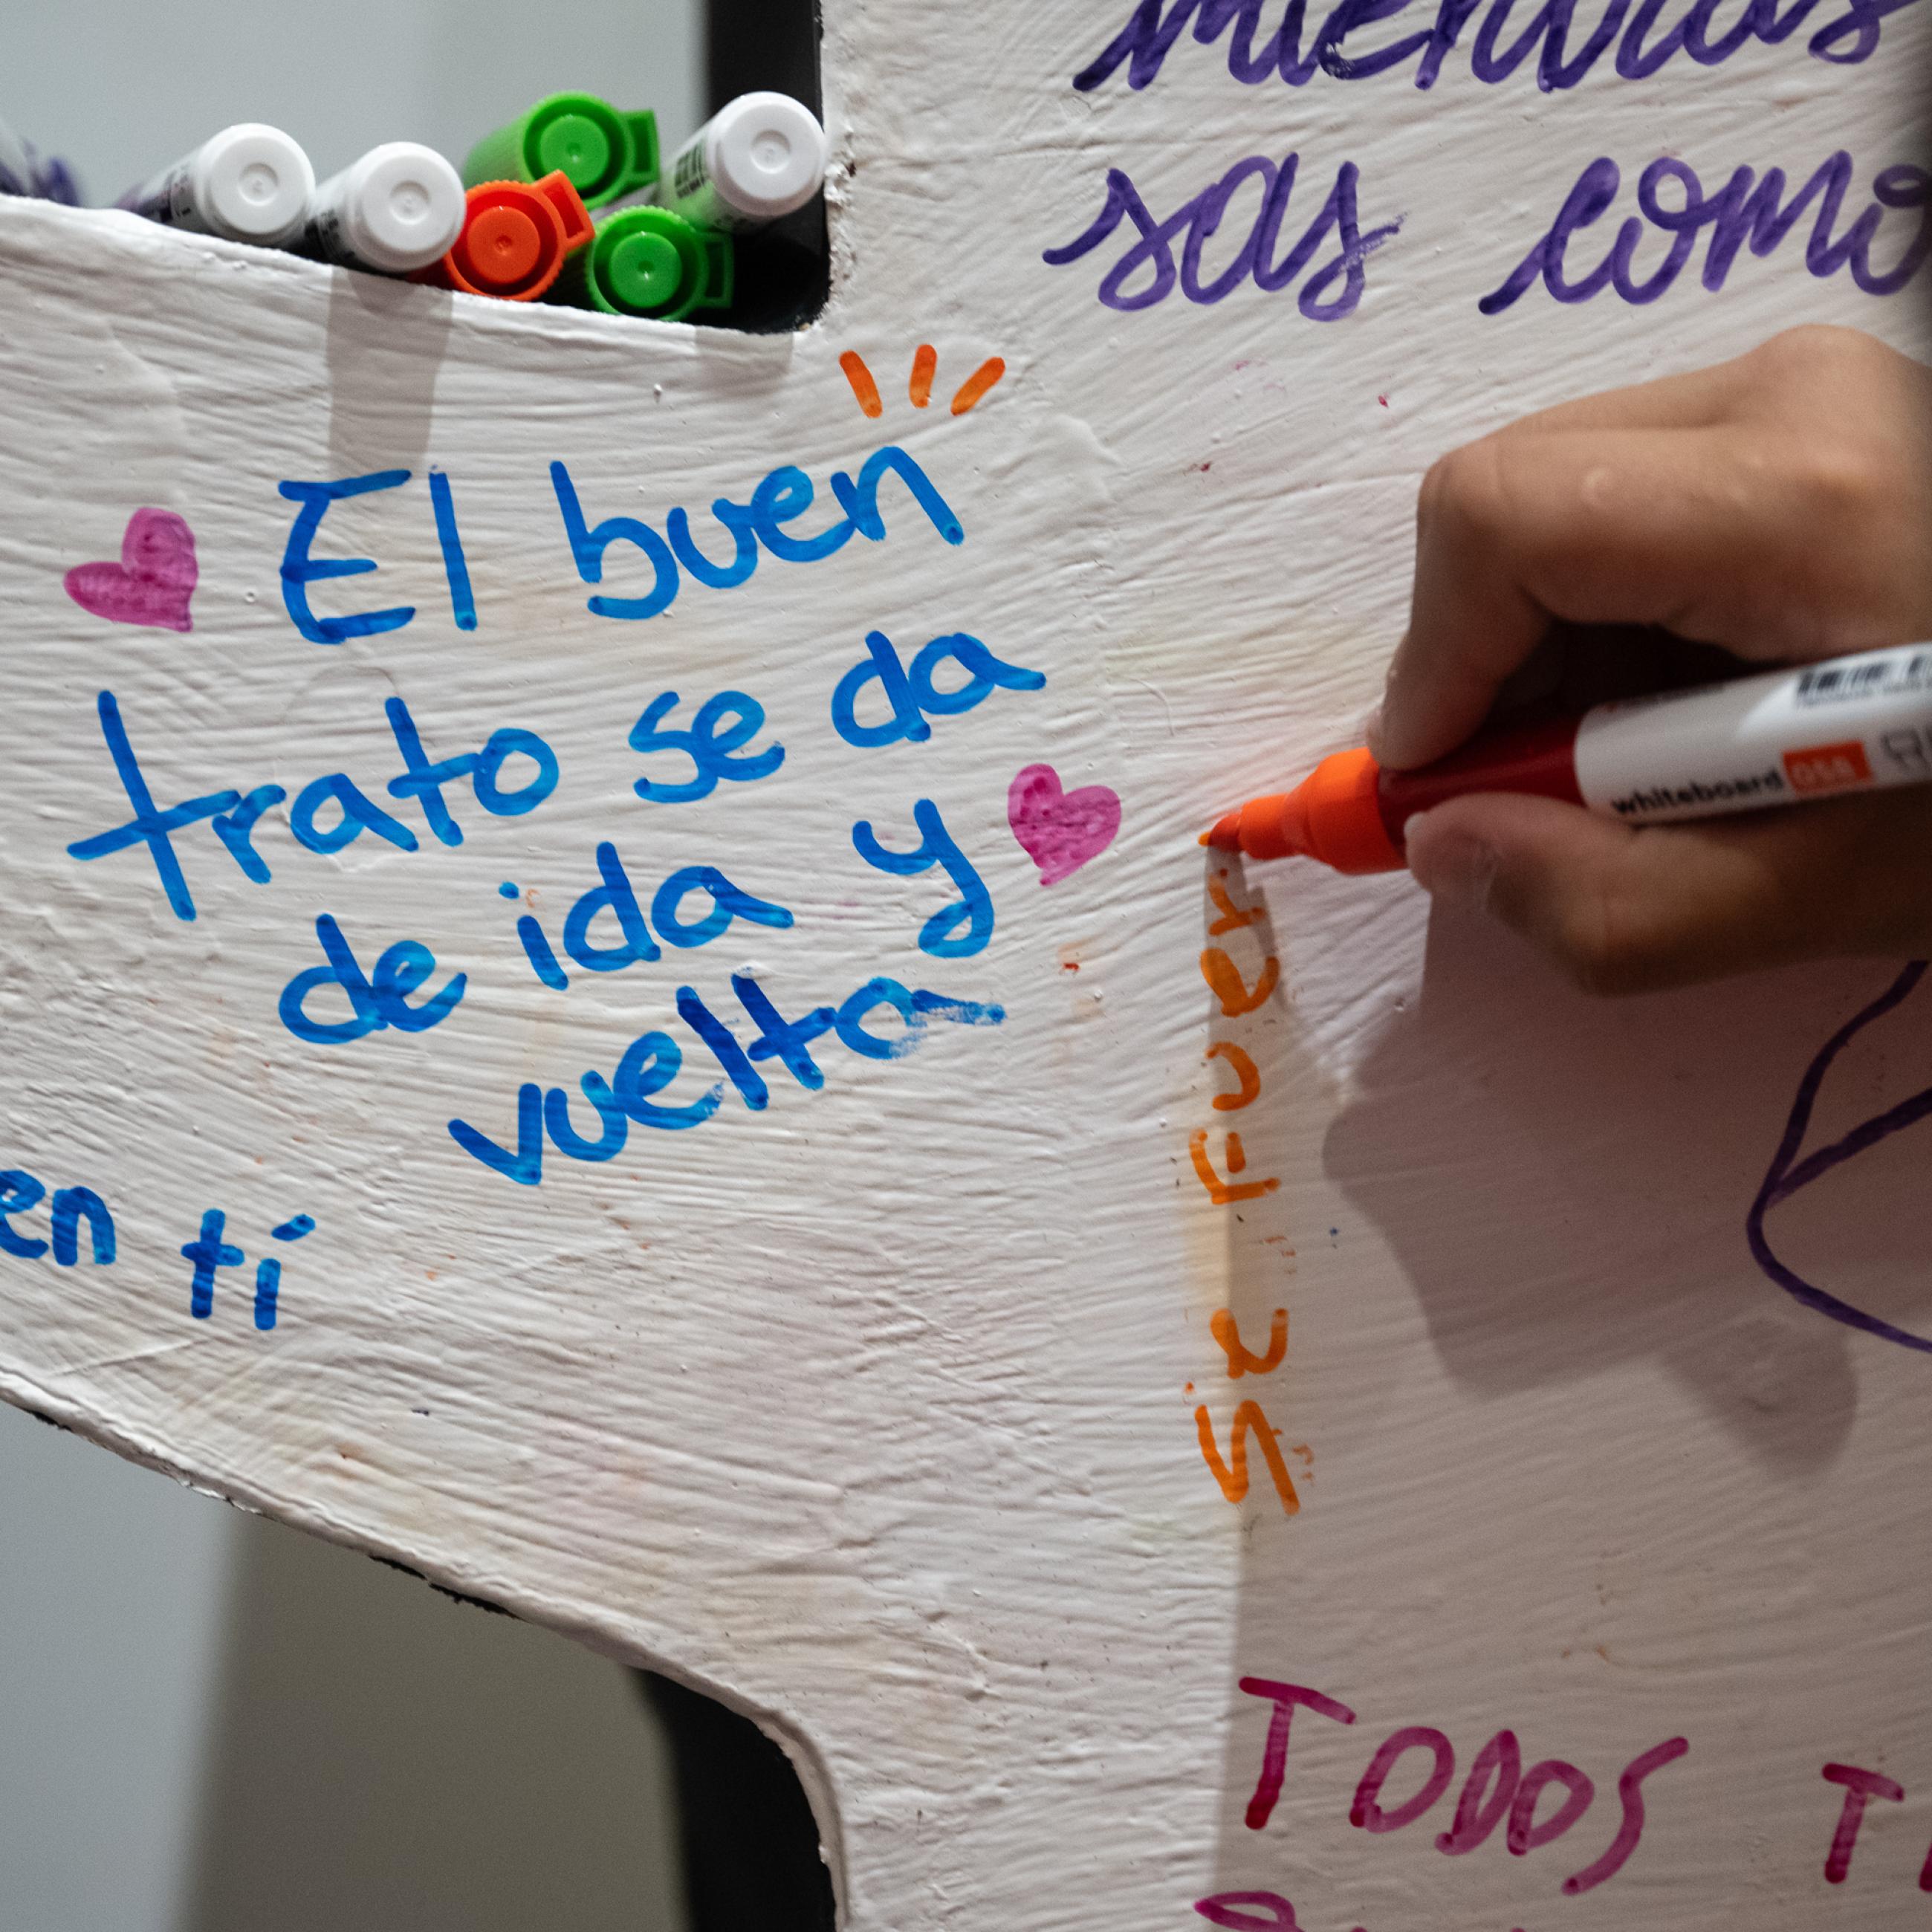 mientras
sas como
El buen
trato se da
de ida y
vuelta
en tí
Se Fuer
whiteboard 058
TODOS T